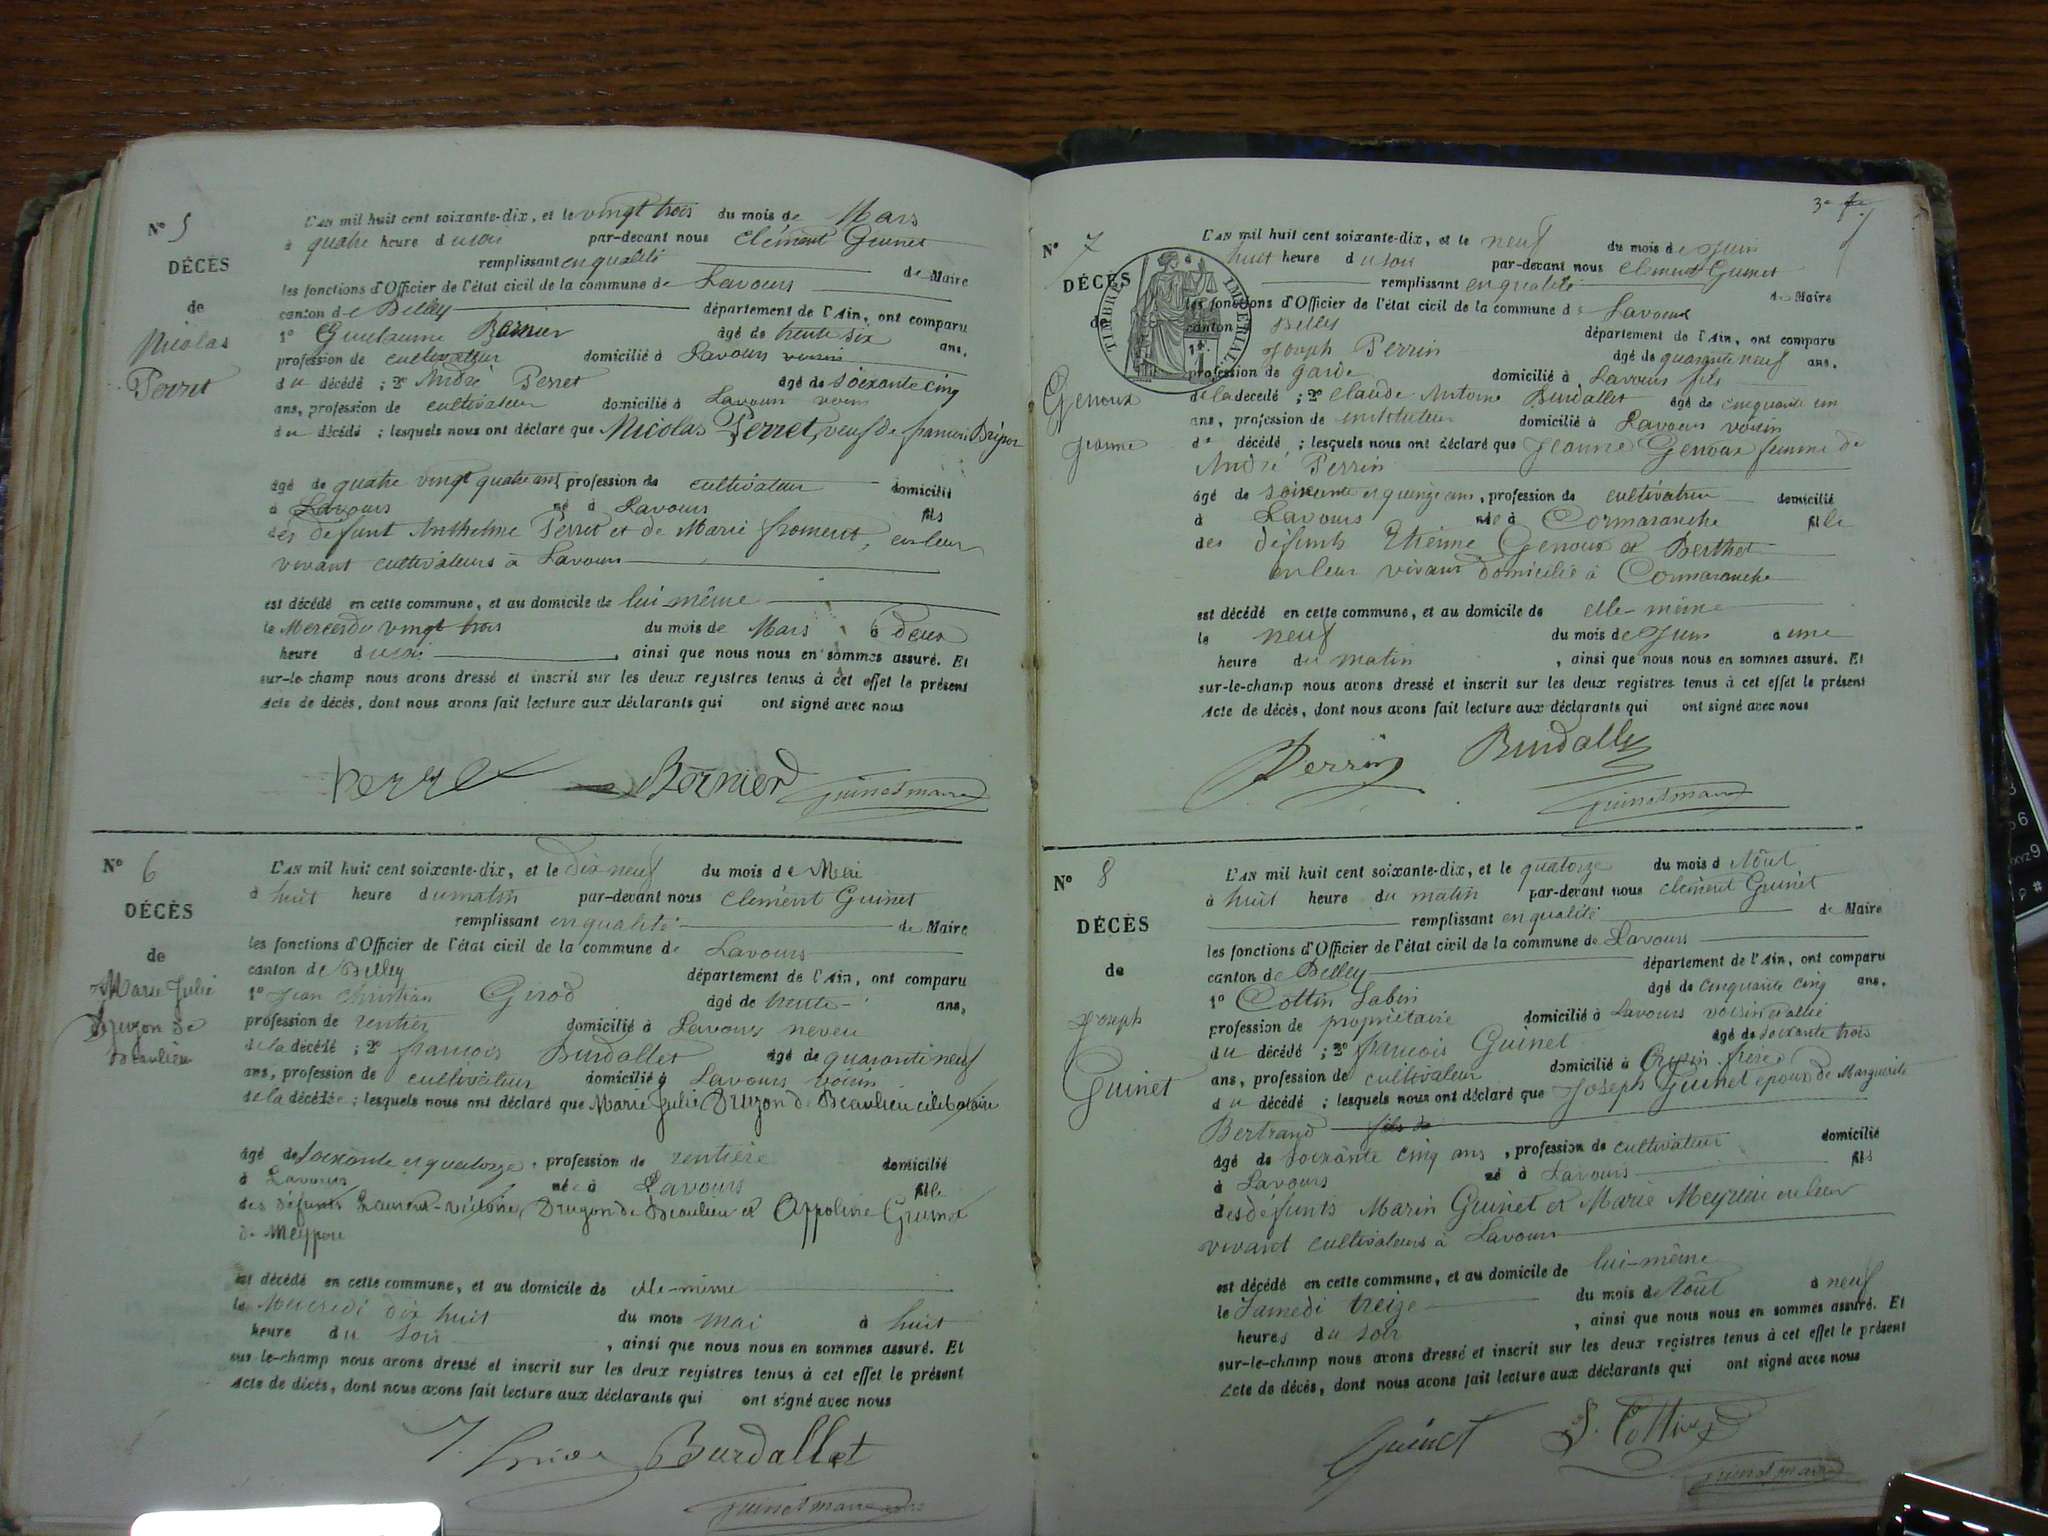 N° 5
DÉCÈS
de
Nicolas
Perret
L'AN mil huit cent soixante-dix, et le vingt trois du mois de Mars
à quatre heure du soir par-devant nous Clément Guinet
remplissant en qualité de Maire
les fonctions d'Officier de l'état civil de la commune de Lavours
canton de Belley département de l'Ain, ont comparu
1° Guillaume Bernier âgé de trente six ans,
profession de cultivateur domicilié à Lavours voisin
du décédé ; 2° André Perret âgé de soixante cinq
ans, profession de cultivateur domicilié à Lavours voisin
du décédé ; lesquels nous ont déclaré que Nicolas Perret, veuf de
âgé de quatre vingt quatre ans, profession de cultivateur domicilié
à Lavours né à Lavours fils
des défunt Anthelme Perret et de Marie froment, en leur
vivant cultivateurs à Lavours
est décédé en cette commune, et au domicile de lui-même
le Mercredi vingt trois du mois de Mars à deux
heure du soir, ainsi que nous nous en sommes assuré. Et
sur-le-champ nous avons dressé et inscrit sur les deux registres tenus à cet effet le présent
acte de décès, dont nous avons fait lecture aux déclarants qui ont signé avec nous
Perret Bernier Guinet maire
N° 6
DÉCÈS
de
Marie Julie
Druzon de
Beaulieu
L'AN mil huit cent soixante-dix, et le dix neuf du mois de Mai
à huit heure du matin par-devant nous Clément Guinet
remplissant en qualité de Maire
les fonctions d'Officier de l'état civil de la commune de Lavours
canton de Belley département de l'Ain, ont comparu
1° Jean Christian Girod âgé de trente ans,
profession de rentier domicilié à Lavours neveu
de la décédé ; 2° francois Burdallet âgé de quarante neuf
ans, profession de cultivateur domicilié à Lavours voisin
de la décédée ; lesquels nous ont déclaré que Marie Julie Druzon de Beaulieu célibataire
âgé de soixante et quatorze, profession de rentière domicilié
à Lavours née à Lavours fille
des défunts Laurent-victoire Druzon de Beaulieu et Appoline Guinet
de
est décédé en cette commune, et au domicile de elle-même
le Mercredi dix huit du mois mai à huit
heure du soir, ainsi que nous nous en sommes assuré. Et
sur-le-champ nous avons dressé et inscrit sur les deux registres tenus à cet effet le présent
acte de décès, dont nous avons fait lecture aux déclarants qui ont signé avec nous
Burdallet
Guinet maire
3e
N° 7
DÉCÈS
de
Genoux
Jeanne
TIMBRE IMPÉRIAL
L'AN mil huit cent soixante-dix, et le neuf du mois de Juin
huit heure du soir par-devant nous Clément Guinet
remplissant en qualité de Maire
les fonctions d'Officier de l'état civil de la commune de Lavours
canton Belley département de l'Ain, ont comparu
1° Joseph Perrin âgé de quarante neuf ans,
profession de garde domicilié à Lavours fils
de la décédé ; 2° Claude Antoine Burdallet âgé de cinquante un
ans, profession de instituteur domicilié à Lavours voisin
de décédé ; lesquels nous ont déclaré que Jeanne Genoux femme de
André Perrin
âgé de soixante et quinze ans, profession de cultivateur domicilié
à Lavours née à Cormaranche fille
des défunts Etienne Genoux et Berthet
en leur vivant domicilié à Cormaranche
est décédé en cette commune, et au domicile de elle-même
le neuf du mois de Juin à une
heure du matin, ainsi que nous nous en sommes assuré. Et
sur-le-champ nous avons dressé et inscrit sur les deux registres tenus à cet effet le présent
acte de décès, dont nous avons fait lecture aux déclarants qui ont signé avec nous
Perrin Burdallet
Guinet maire
N° 8
DÉCÈS
de
Joseph
Guinet
L'AN mil huit cent soixante-dix, et le quatorze du mois d'Août
à huit heure du matin par-devant nous Clément Guinet
remplissant en qualité de Maire
les fonctions d'Officier de l'état civil de la commune de Lavours
canton de Belley département de l'Ain, ont comparu
1° Cottin Sabin âgé de cinquante cinq ans,
profession de propriétaire domicilié à Lavours voisin et allié
du décédé ; 2° francois Guinet âgé de soixante trois
ans, profession de cultivateur domicilié à frère
du décédé ; lesquels nous ont déclaré que Joseph Guinet époux de Marguerite
Bertrand fils de
âgé de soixante cinq ans, profession de cultivateur domicilié
à Lavours né à Lavours fils
des défunts Marin Guinet et Marie en leur
vivant cultivateurs à Lavours
est décédé en cette commune, et au domicile de lui-même
le Samedi treize du mois de Août à neuf
heures du soir, ainsi que nous nous en sommes assuré. Et
sur-le-champ nous avons dressé et inscrit sur les deux registres tenus à cet effet le présent
acte de décès, dont nous avons fait lecture aux déclarants qui ont signé avec nous
Guinet S. Cottin
Guinet maire